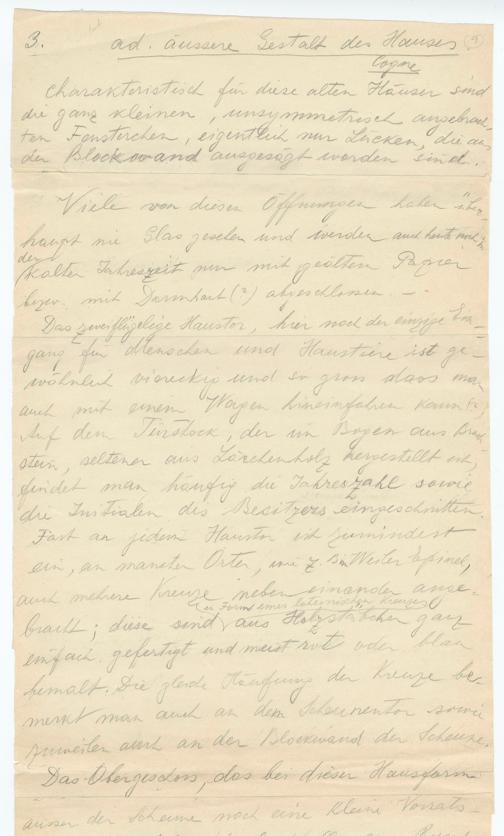 3. ad. äussere Gestalt des Hauses (9)
Cogne
Charakteristisch für diese alten Häuser sind
die ganz kleinen, unsymmetrisch angebrach-
ten Fensterchen, eigentlich nur Lücken, die aus
der Blockwand ausgesägt worden sind.
Viele von diesen Öffnungen haben über-
haupt nie Glas gesehen und werden auch heute noch in
der kalten Jahreszeit nur mit geöltem Papier
bezw. mit Darmhaut (?) abgeschlossen. –
Das zweiflügelige Haustor, hier noch der einzige Ein-
gang für Menschen und Haustiere ist ge-
wöhnlich viereckig und so gross dass man
auch mit einem Wagen hineinfahren kann (?)
Auf dem Türstock, der im Bogen aus Bruch-
stein, seltener aus Lärchenholz hergestellt ist,
findet man häufig die Jahreszahl sowie
die Initialen des Besitzers eingeschnitten.
Fast an jedem Haustor ist zumindest
ein, an mancher Orten, wie z. B. im Weiler Epinel,
auch mehrere Kreuze neben einander ange-
bracht; diese sind (in Form eines lateinischen Kreuzes) aus Holzstäbchen ganz
einfach gefertigt und meist rot oder blau
bemalt. Die gleiche Häufung der Kreuze be-
merkt man auch an dem Scheunentor sowie
zuweilen auch an der Blockwand der Scheune.
Das Obergeschoss, das bei dieser Hausform
ausser der Scheune noch eine kleine Vorrats-